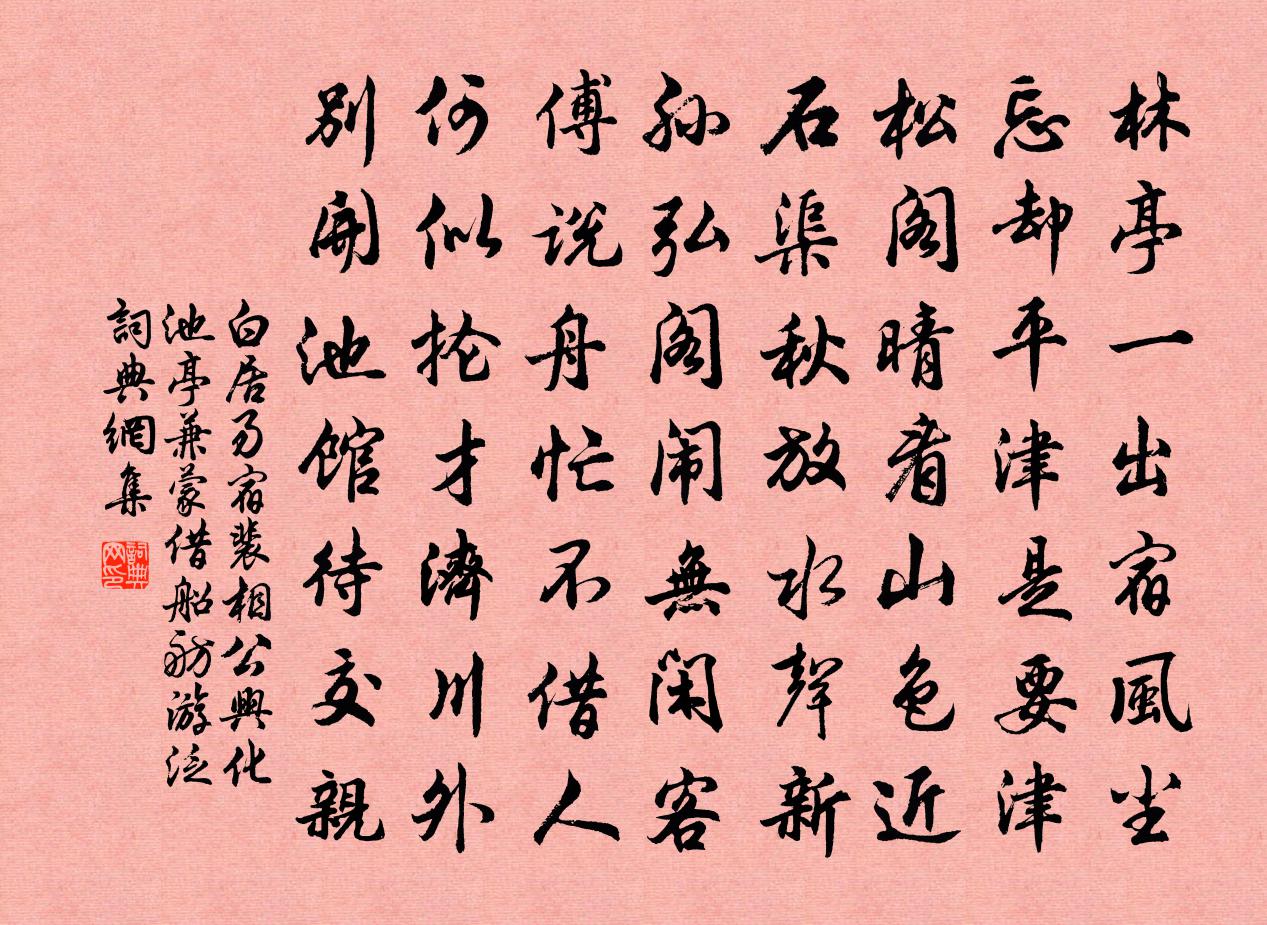 林亭一出宿風尘
忘却平津是要津
松阁晴看山色近
石渠秋放水聲新
孙弘阁闹無闲客
傅说舟忙不借人
何似抡才濟川外
别開池馆待交親
白居易宿裴相公興化
池亭兼蒙借船舫游泛
詞典網集
詞典网印